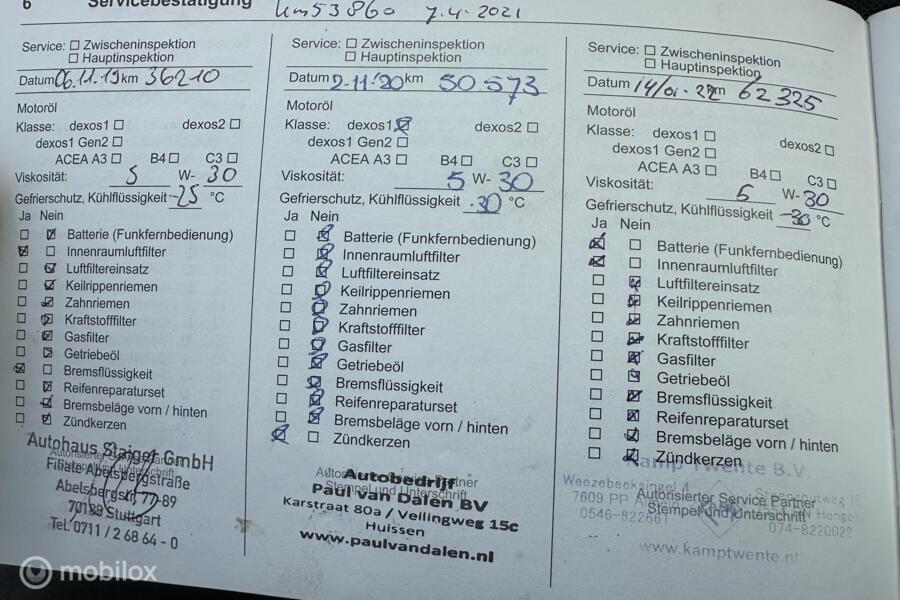 6 Servicebestätigung km 53860 7.4-2021
Service: ☐ Zwischeninspektion
☐ Hauptinspektion
Datum 06.11.19 km 36210
Motoröl
Klasse: dexos1 ☐ dexos2 ☐
dexos1 Gen2 ☐
ACEA A3 ☐ B4 ☐ C3 ☐
Viskosität: 5 W- 30
Gefrierschutz, Kühlflüssigkeit -25 °C
Ja Nein
☐ ☑ Batterie (Funkfernbedienung)
☑ ☐ Innenraumluftfilter
☐ ☑ Luftfiltereinsatz
☐ ☑ Keilrippenriemen
☐ ☑ Zahnriemen
☐ ☑ Kraftstofffilter
☐ ☑ Gasfilter
☐ ☑ Getriebeöl
☑ ☐ Bremsflüssigkeit
☐ ☑ Reifenreparaturset
☐ ☑ Bremsbeläge vorn / hinten
☐ ☑ Zündkerzen
Autohaus Staiger GmbH
Autorisierter Service Partner
Filiale Abelsbergstraße
Stempel und Unterschrift
Abelsbergstr. 77-89
70188 Stuttgart
Tel. 0711 / 2 68 64 - 0
Service: ☐ Zwischeninspektion
☐ Hauptinspektion
Datum 2-11-'20 km 50.573
Motoröl
Klasse: dexos1 ☑ dexos2 ☐
dexos1 Gen2 ☐
ACEA A3 ☐ B4 ☐ C3 ☐
Viskosität: 5 W- 30
Gefrierschutz, Kühlflüssigkeit -30 °C
Ja Nein
☐ ☑ Batterie (Funkfernbedienung)
☐ ☑ Innenraumluftfilter
☐ ☑ Luftfiltereinsatz
☐ ☑ Keilrippenriemen
☐ ☑ Zahnriemen
☐ ☑ Kraftstofffilter
☐ ☑ Gasfilter
☐ ☑ Getriebeöl
☐ ☑ Bremsflüssigkeit
☐ ☑ Reifenreparaturset
☐ ☑ Bremsbeläge vorn / hinten
☑ ☐ Zündkerzen
Autorisierter Service Partner
Autobedrijf
Stempel und Unterschrift
Paul van Dalen BV
Karstraat 80a / Vellingweg 15c
Huissen
www.paulvandalen.nl
Service: ☐ Zwischeninspektion
☐ Hauptinspektion
Datum 14/01-22 km 62325
Motoröl
Klasse: dexos1 ☐ dexos2 ☐
dexos1 Gen2 ☐
ACEA A3 ☐ B4 ☐ C3 ☐
Viskosität: 5 W- 30
Gefrierschutz, Kühlflüssigkeit -30 °C
Ja Nein
☑ ☐ Batterie (Funkfernbedienung)
☑ ☐ Innenraumluftfilter
☐ ☑ Luftfiltereinsatz
☐ ☑ Keilrippenriemen
☐ ☑ Zahnriemen
☐ ☑ Kraftstofffilter
☐ ☑ Gasfilter
☐ ☑ Getriebeöl
☐ ☑ Bremsflüssigkeit
☐ ☑ Reifenreparaturset
☐ ☑ Bremsbeläge vorn / hinten
☐ ☑ Zündkerzen
Kamp Twente B.V.
Weezebeeksingel 4
Autorisierter Service Partner
7609 PP
Stempel und Unterschrift
0546-822661 074-8220022
www.kamptwente.nl
mobilox